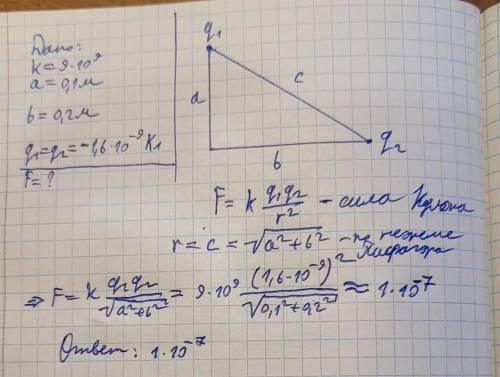 Дано:
k = 9·10⁹
a = 0,1 м
b = 0,2 м
q₁ = q₂ = -1,6·10⁻⁹ Кл
F = ?
q₁
a
c
b
q₂
F = k q₁q₂/r² - сила Кулона
r = c = √(a²+b²) - по теореме
Пифагора
⇒ F = k q₁q₂/√(a²+b²) = 9·10⁹ (1,6·10⁻⁹)²/√(0,1²+0,2²) ≈ 1·10⁻⁷
Ответ: 1·10⁻⁷